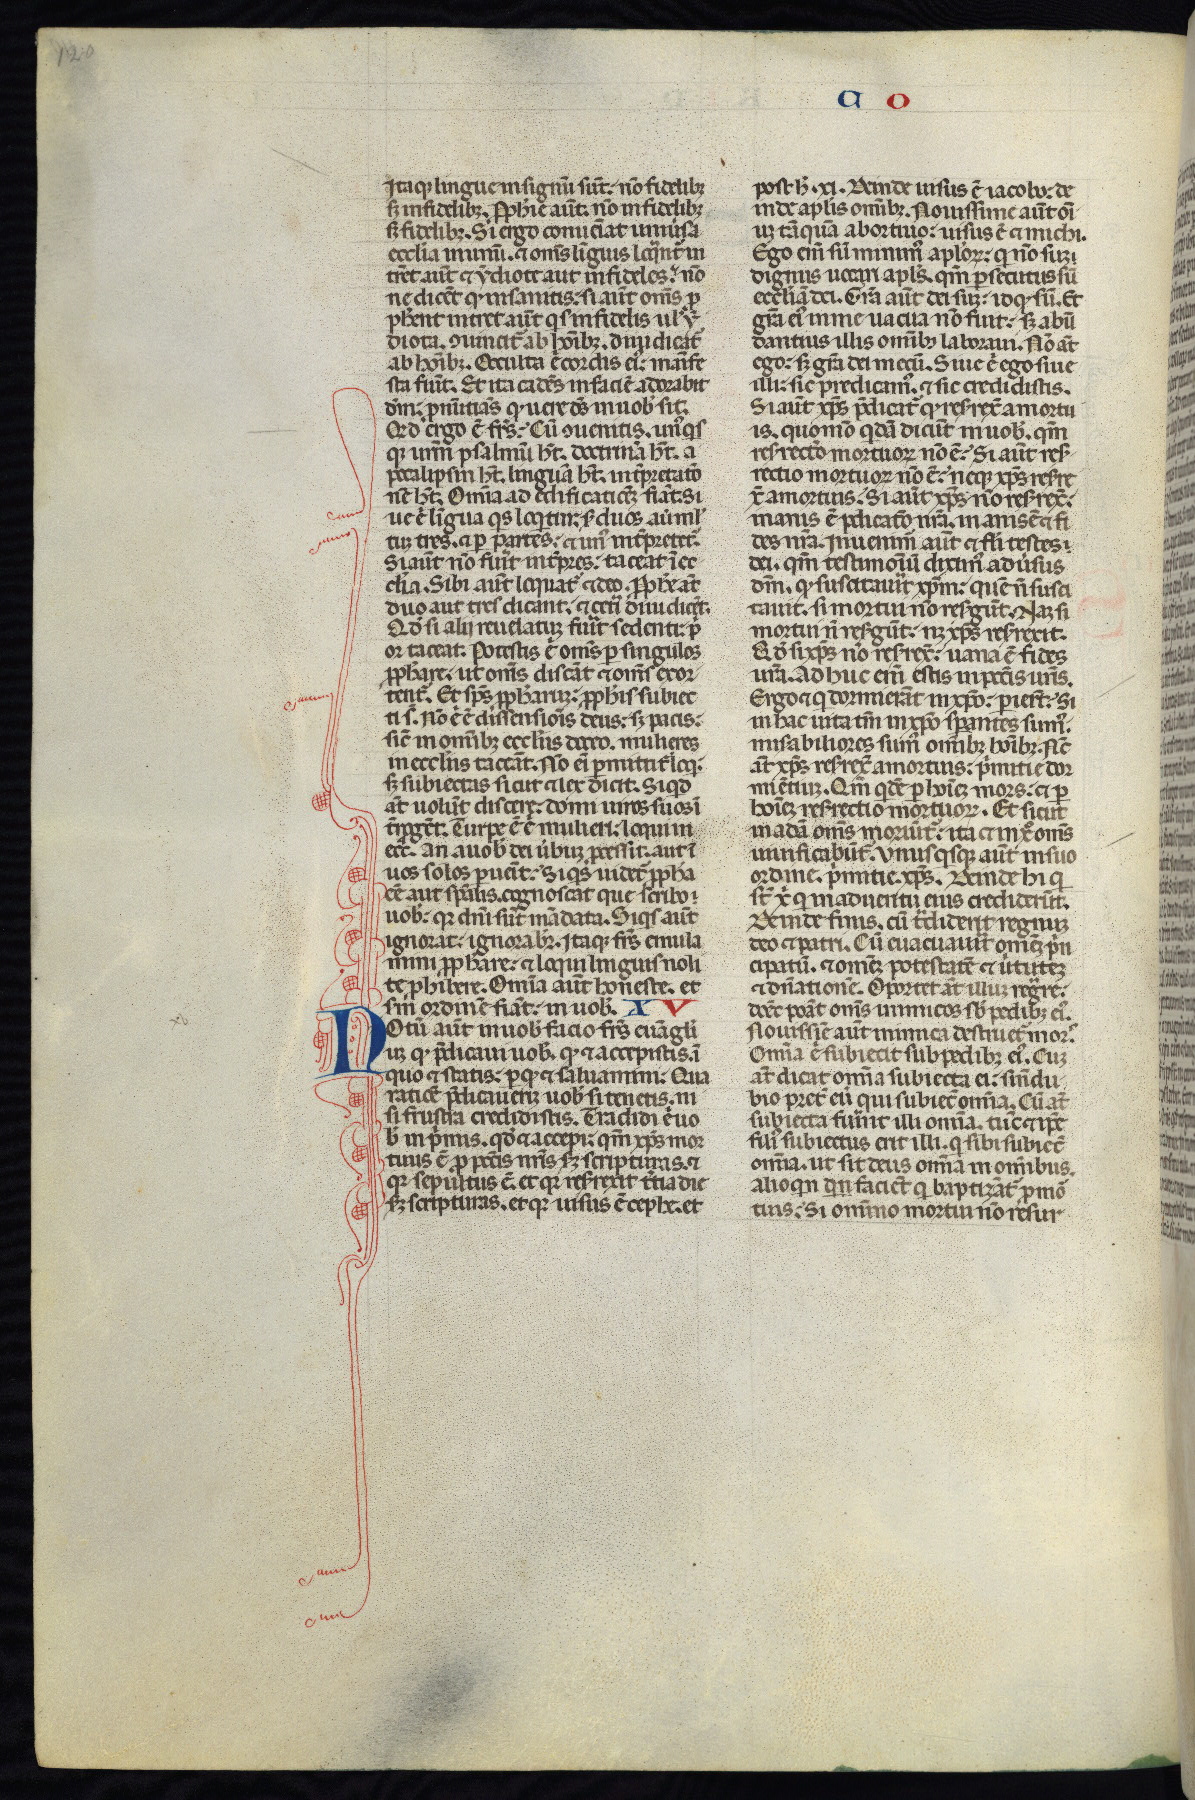 120
a o
Itaqꝫ lingue in signũ sũt. nõ fidelibꝫ
sꝫ infidelibꝫ. Pphie aũt. nõ infidelibꝫ
sꝫ fidelibꝫ. Si ergo conueniat uniũsa
ecclia in unũ. ⁊ oms linguis loqñt᷑ in
trẽt aũt ⁊ ydiote aut infideles. nõ
ne dicẽt qꝛ insanitis. si aũt oms p
phent intret aũt qͥs infidelis ul᷑ y
diota. ꝯuincit᷑ ab hõibꝫ. diiudicat᷑
ab hõibꝫ. Occulta ẽ cordis eiꝰ manife
sta fiũt. Et ita cadẽs in faciẽ adorabit
dñm. pnũtiãs qꝛ uere dẽs in uob sit.
Qͥd ergo ẽ frẽs. Cũ ꝯuenitis. unꝰqͥs
qꝫ urm̃ psalmũ ht. doctrinã ht. a
pocalipsim ht. linguã ht. int̃pretatõ
nẽ ht. Omia ad edificatiõꝫ fiãt. Si
ue ẽ lingua qͥs loqͥtur. s̃ duos aũ ml᷑
tuꝫ tres. ⁊ p partes. ⁊ unꝰ int̃pretet᷑.
Si aũt nõ fũit int̃pres. taceat ĩ ec
clia. Sibi aũt loquat᷑ ⁊ deo. Pphe aũt
duo aut tres dicant. ⁊ cet̃i diiudicẽt.
Qd si alii reuelatũ fũit sedenti. p
or taceat. Potestis ẽ oms p singulos
pphare. ut oms discãt ⁊ oms exor
tent᷑. Et sps pphaꝝ. pphis subiec
ti s̃. Nõ ẽ ẽ dissensiõis deus. sꝫ pacis.
sic̃ in omibꝫ eccliis doceo. mulieres
in eccliis taceãt. Nõ ei pmittit᷑ loqͥ.
sꝫ subiectas sicut ⁊ lex dicit. Siqͥd
aũt uolũt discere. domi uiros suos ĩ
t̃rogẽt. Turpe ẽ ẽ mulieri. loqui in
ecc̃. An a uob dei ũbuꝫ pcessit. aut ĩ
uos solos puẽit. Siqͥs uidet᷑ ppha
eẽ aut spalis. cognoscat que scribo
uob. qꝛ dñi sũt mãdata. Siqͥs aũt
ignorat. ignorabr̃. Itaqꝫ frẽs emula
mini pphare. ⁊ loqui linguis noli
te phibere. Omia aũt honeste. et
sm ordinẽ fiãt. in uob. XV
Notũ aũt in uob facio frẽs euãgli
uꝫ qꝛ pdicaui uob. qꝛ ⁊ accepistis. ĩ
quo ⁊ statis. p qꝛ ⁊ saluamini. Qua
ratiõe pdicauerꝫ uob si tenetis. ni
si frustra credidistis. Tradidi ẽ uo
b in pmis. qd ⁊ accepi. qm xps mor
tuus ẽ p pctis nris sꝫ scripturas. ⁊
qꝛ sepultus ẽ. et qꝛ resrexit t̃tia die
sꝫ scripturas. et qꝛ uisus ẽ cephe. et
post h̃. xi. Deinde uisus ẽ iacobo. de
inde aplis omibꝫ. Nouissime aũt oĩ
uꝫ tãquã abortiuo. uisus ẽ ⁊ michi.
Ego eni sũ minimꝰ aploꝝ. qͥ nõ suꝫ
dignus uocari apls. qm psecutus sũ
eccliã dei. Grã aũt dei suꝫ. id qꝛ sũ. Et
grã eiꝰ in me uacua nõ fuit. sꝫ abũ
dantius illis omibꝫ laboraui. Nõ aũt
ego. sꝫ grã dei mecũ. Siue ẽ ego siue
illi. sic predicamꝰ. ⁊ sic credidistis.
Si aũt xps pdicat᷑ qꝛ resrex̃ a mortu
is. quomõ qͥdã dicũt in uob. qm
resrectio mortuoꝝ nõ ẽ. Si aũt res
rectio mortuoꝝ nõ ẽ. neqꝫ xps resre
x̃ a mortuis. Si aũt xps nõ resrex̃.
inanis ẽ pdicatõ nrã. inanis ẽ ⁊ fi
des nrã. Inuenimꝰ aũt ⁊ fl̃i testes
dei. qm testimoniũ diximꝰ aduersus
dm. qꝛ suscitauit xpm. quẽ ñ susci
tauit. si mortui nõ resgũt. Naꝫ si
mortui ñ resgũt. nꝫ xps resrexit.
Qd si xps nõ resrex̃. uana ẽ fides
urã. Adhuc eni estis in pctis uris.
Ergo ⁊ qͥ dormierãt in xpo. pierũt. Si
in hac uita tm in xpo sperantes sumꝰ.
misabiliores sumꝰ omibꝫ hõibꝫ. Nũc
aũt xps resrex̃ a mortuis. pmitie dor
miẽtiuꝫ. Qm qde p hoiẽꝫ mors. ⁊ p
hoiẽꝫ resrectio mortuoꝝ. Et sicut
in adã oms moriũt᷑. ita ⁊ in x̃o oms
uiuificabũt᷑. Vnusqͥsqꝫ aũt in suo
ordine. pmitie xps. Deinde hi qͥ
st̃ x̃i qͥ in aduentu eius crediderũt.
Deinde finis. cũ t̃diderit regnuꝫ
deo ⁊ patri. Cũ euacuauit omẽꝫ prin
cipatũ. ⁊ omẽꝫ potestatẽ ⁊ ũtutẽꝫ
⁊ dñationẽ. Oportet aũt illuꝫ regre.
donec poat oms inimicos sb pedibꝫ eiꝰ.
Nouissie aũt inimica destruet᷑ morꝰ.
Omia ẽ subiecit sub pedibꝫ eiꝰ. Cuꝫ
aũt dicat omia subiecta ei. sine du
bio pret̃ eũ qui subiec̃ omia. Cũ aũt
subiecta fuint illi omia. tũc ⁊ ipe
filiꝰ subiectus erit illi. qͥ sibi subiec̃
omia. ut sit deus omia in omibus.
alioqn qͥd facient qͥ baptizãt᷑ p mo
tuis. Si omnino mortui nõ resur